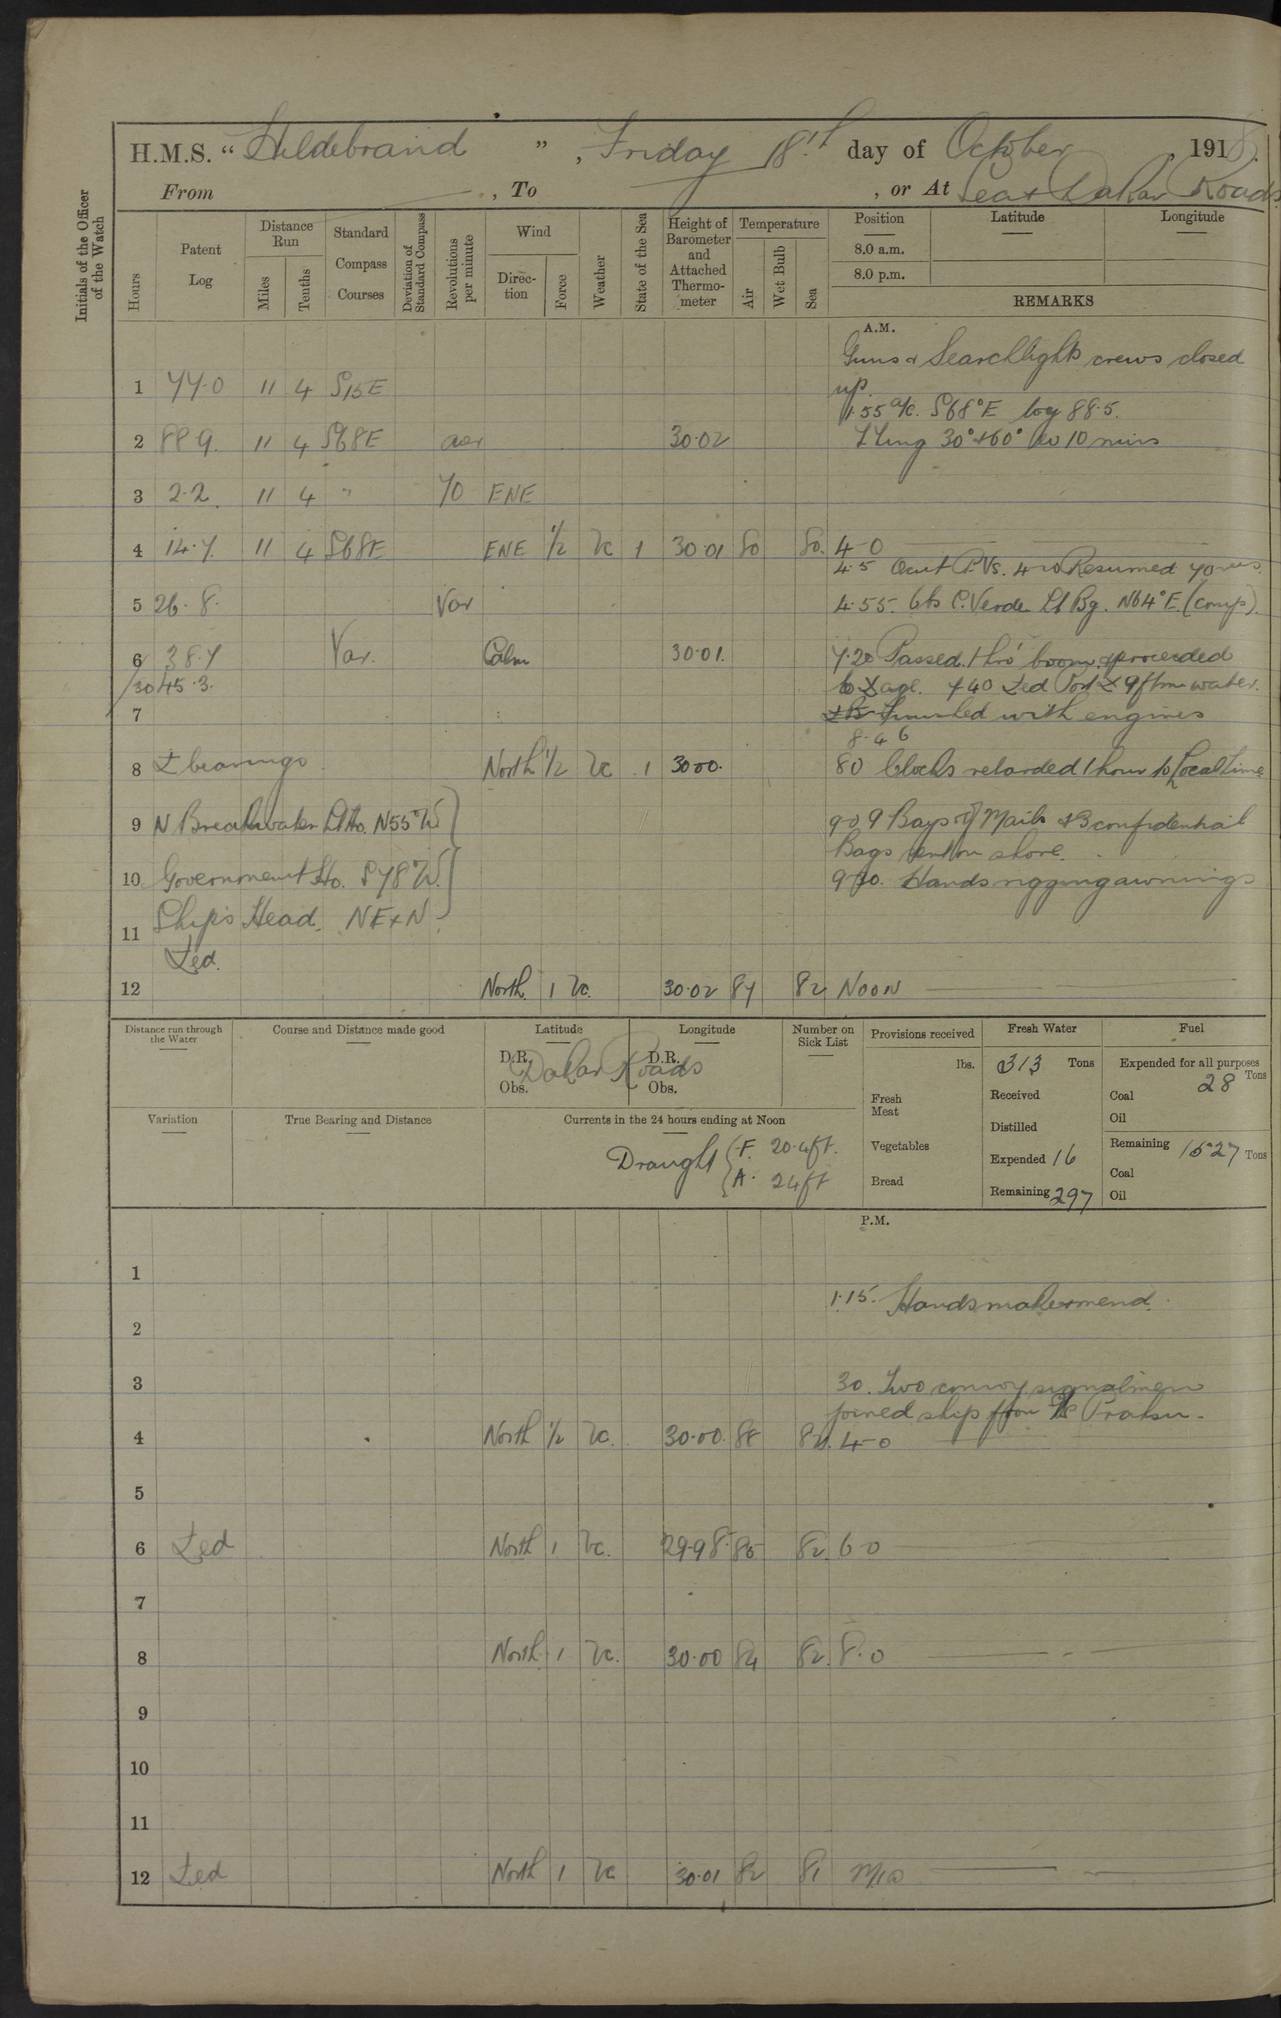 H.M.S. "Hildebrand", Friday 18th day of October, 1918.
From , To , or At Sea & Dakar Roads
Initials of the Officer of the Watch
Hours
Patent Log
Distance Run
Miles
Tenths
Standard Compass Courses
Deviation of Standard Compass
Revolutions per minute
Wind
Direction
Force
Weather
State of the Sea
Height of Barometer and Attached Thermometer
Temperature
Air
Wet Bulb
Sea
Position Latitude Longitude
8.0 a.m.
8.0 p.m.
REMARKS
A.M.
Guns & Searchlights crews closed
1 77.0 11 4 S15E up.
1.55 a/c. S68°E log 88.5.
2 88.9 11 4 S68E 30.02 30° & 60° 10 mins
3 2.2 11 4 " 70 ENE
4 14.7 11 4 S68E ENE 1/2 bc 1 30.01 80 80. 4-0
4.5 Out P.Vs. 4-10 Resumed 70 revs.
5 26.8. Var 4.55. C. Verde Lt Bg. N64°E. (comp).
6 38.7 Var. Calm 30.01. 7.20 Passed thro' boom & proceeded
45.3. to 7 40 Port 9 fms water.
7 Finished with engines
8.46
8 bearings North 1/2 bc 1 30.00. 8 0 Clocks retarded 1 hour to Local time
9 N Breakwater Lt Ho. N55°W 9-0 9 Bags of Mails & 3 confidential
Bags sent on shore.
10 Government Ho. S78°W. Hands rigging awnings
11 Ship's Head. NE x N
12 North 1 bc. 30.02 87 82 NOON
Distance run through the Water
Course and Distance made good
Latitude
D.R.
Obs.
Longitude
D.R.
Obs.
Dakar Roads
Number on Sick List
Provisions received
lbs.
Fresh Meat
Vegetables
Bread
Fresh Water
313 Tons
Received
Distilled
Expended 16
Remaining 297
Fuel
Expended for all purposes
28 Tons
Coal
Oil
Remaining 1527 Tons
Coal
Oil
Variation
True Bearing and Distance
Currents in the 24 hours ending at Noon
Draught F. 20.4ft.
A. 24ft
P.M.
1
1.15. Hands make & mend.
2
3 3 0. Two convoy signalmen
joined ship from
4 North 1/2 bc. 30.00. 88 82. 4-0
5
6 North 1 bc. 29.98. 85 82 6-0
7
8 North 1 bc. 30.00 84 82. 8.0
9
10
11
12 North 1 bc 30.01 82 81